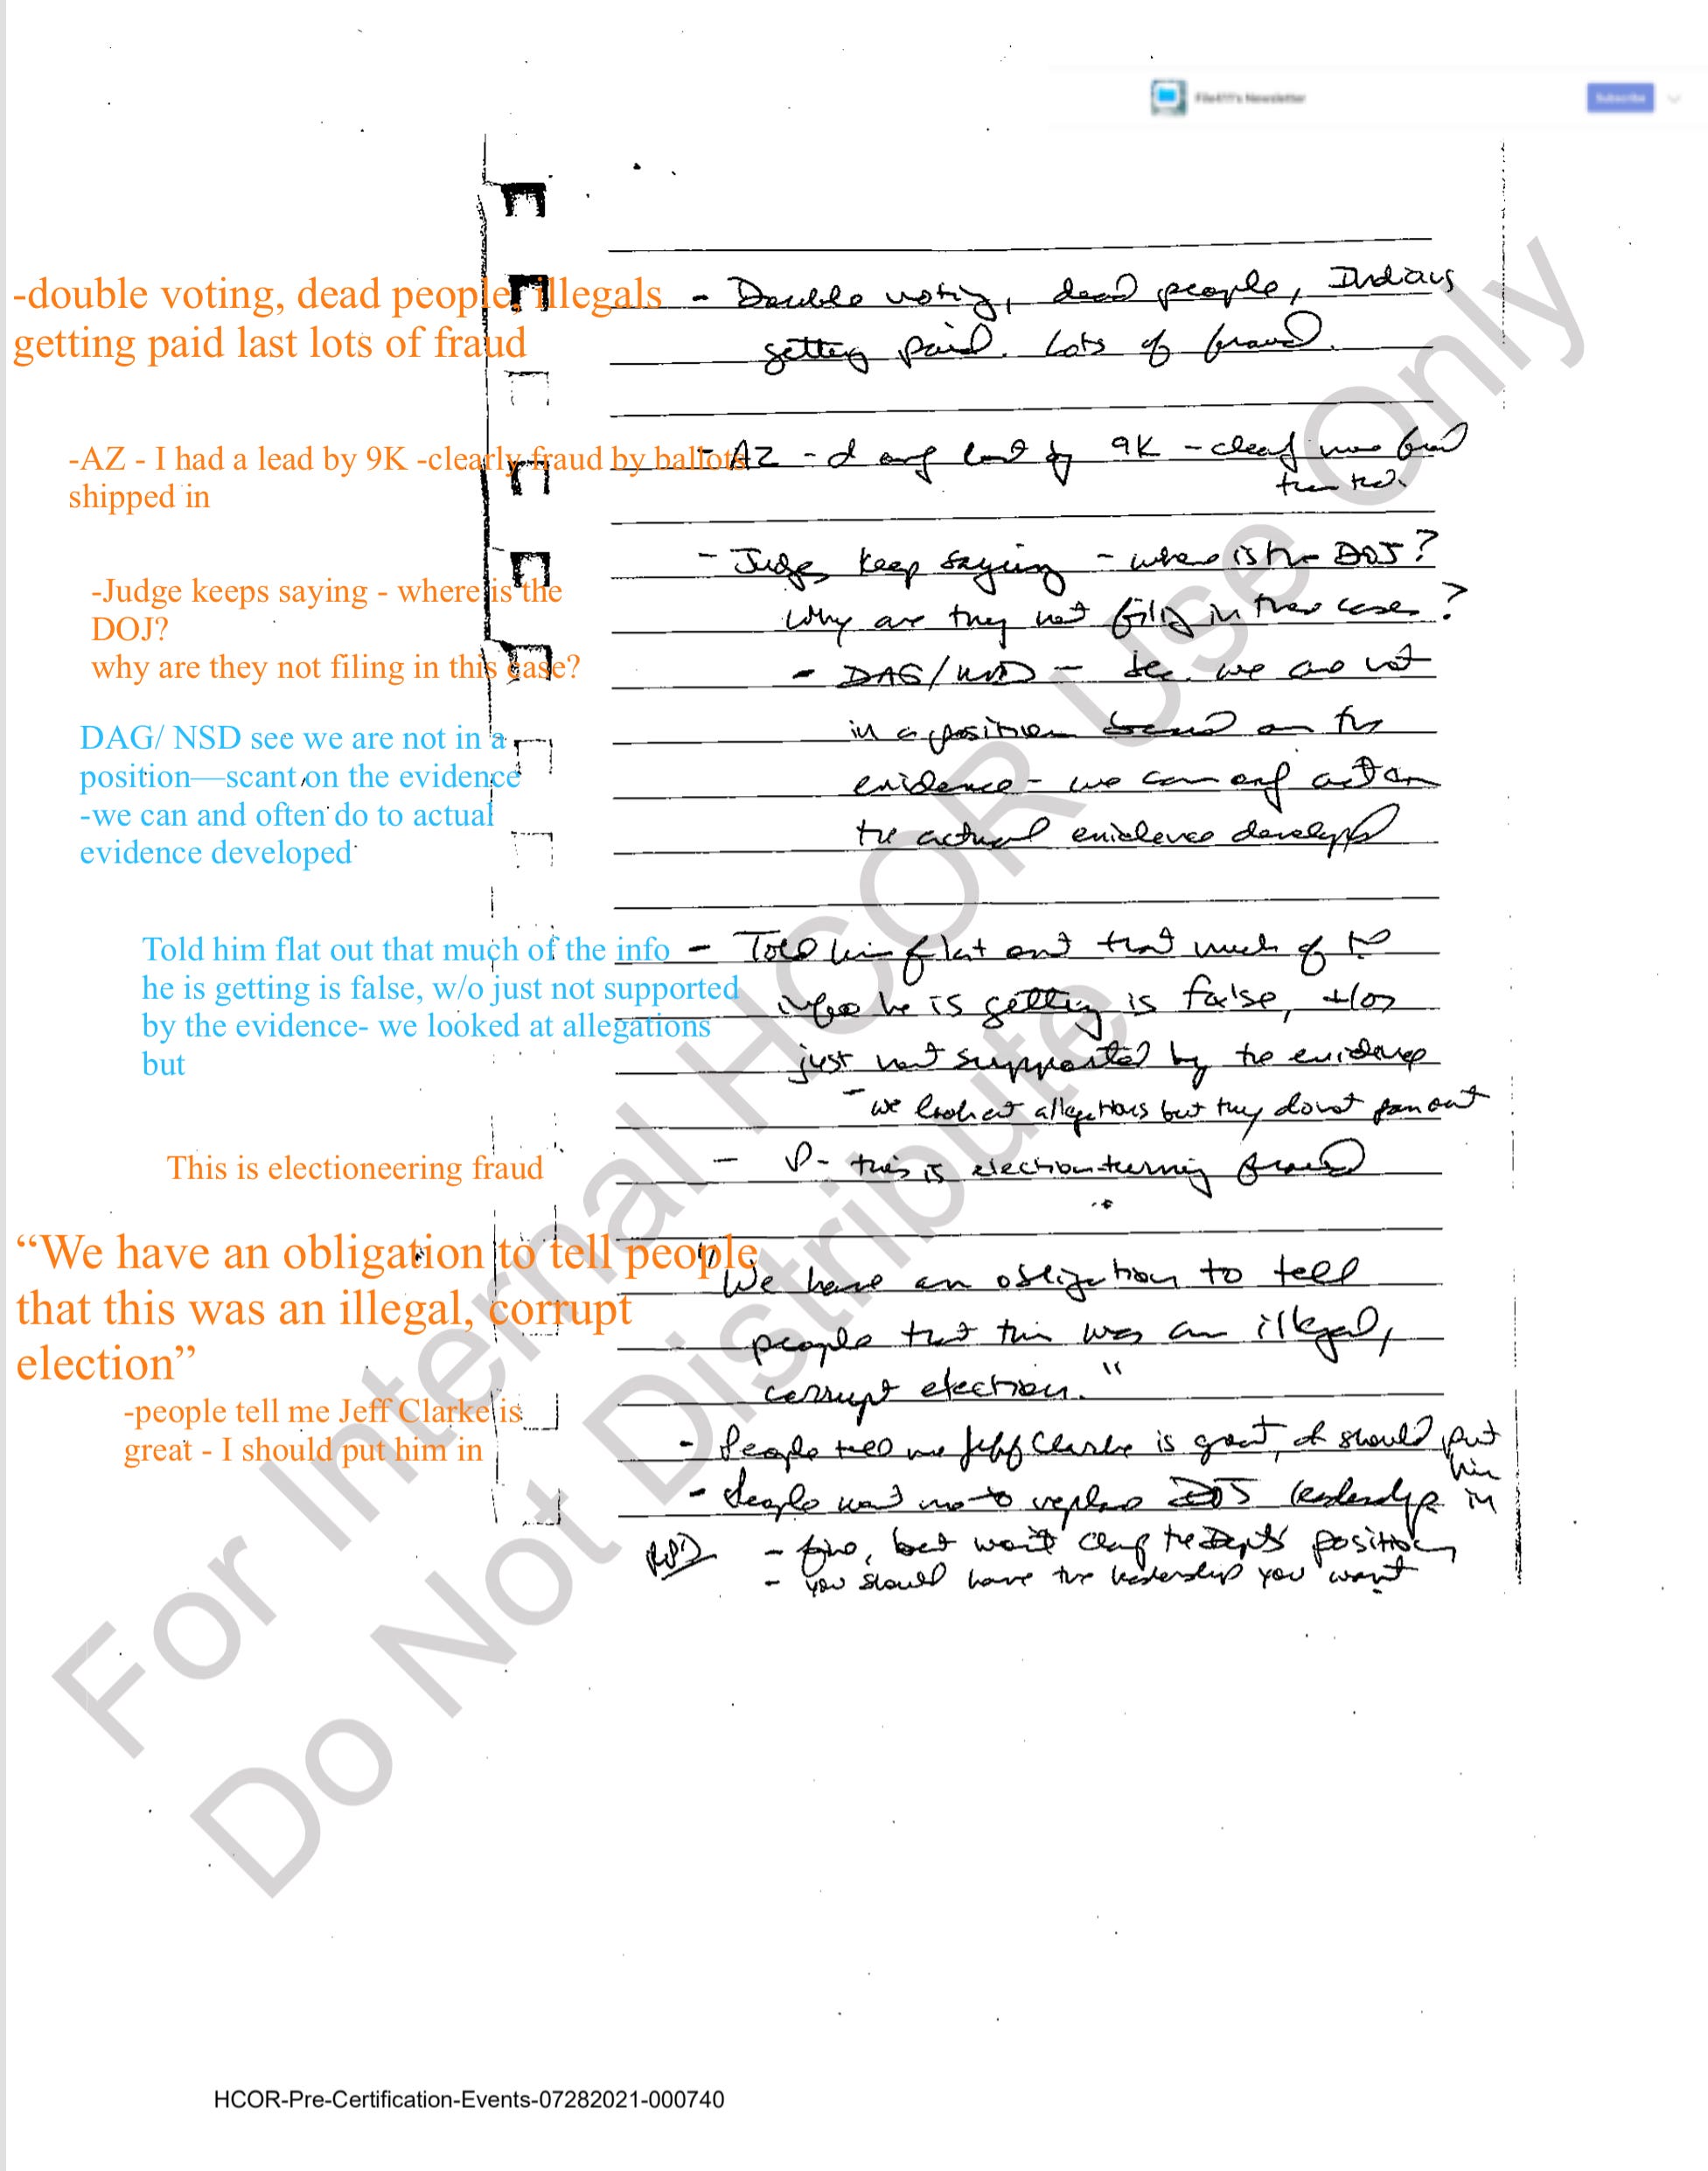 File411's Newsletter
Subscribe
-double voting, dead people, illegals
getting paid last lots of fraud
- Double voting, dead people, Indians
getting paid. Lots of fraud.
-AZ - I had a lead by 9K -clearly fraud by ballots
shipped in
- AZ - only lost by 9K -
- Judges keep saying - where is the DOJ?
Why are they not filing in these cases?
-Judge keeps saying - where is the
DOJ?
why are they not filing in this case?
- DAG/ - we are not
in a position based on the
evidence - we can only act on
the actual evidence developed
DAG/ NSD see we are not in a
position—scant on the evidence
-we can and often do to actual
evidence developed
Told him flat out that much of the info
he is getting is false, w/o just not supported
by the evidence- we looked at allegations
but
- Told him flat out that much of the
info he is getting is false, +/or
just not supported by the evidence
- we look at allegations but they don't pan out
This is electioneering fraud
- P- this is election turning fraud
“We have an obligation to tell people
that this was an illegal, corrupt
election”
"We have an obligation to tell
people that this was an illegal,
corrupt election."
-people tell me Jeff Clarke is
great - I should put him in
- People tell me Jeff Clarke is great, I should put
him
in
- People want me to replace DOJ leadership
- fine, but won't change the Dept's position
- you should have the leadership you want
For Internal HCOR Use Only
Do Not Distribute
HCOR-Pre-Certification-Events-07282021-000740